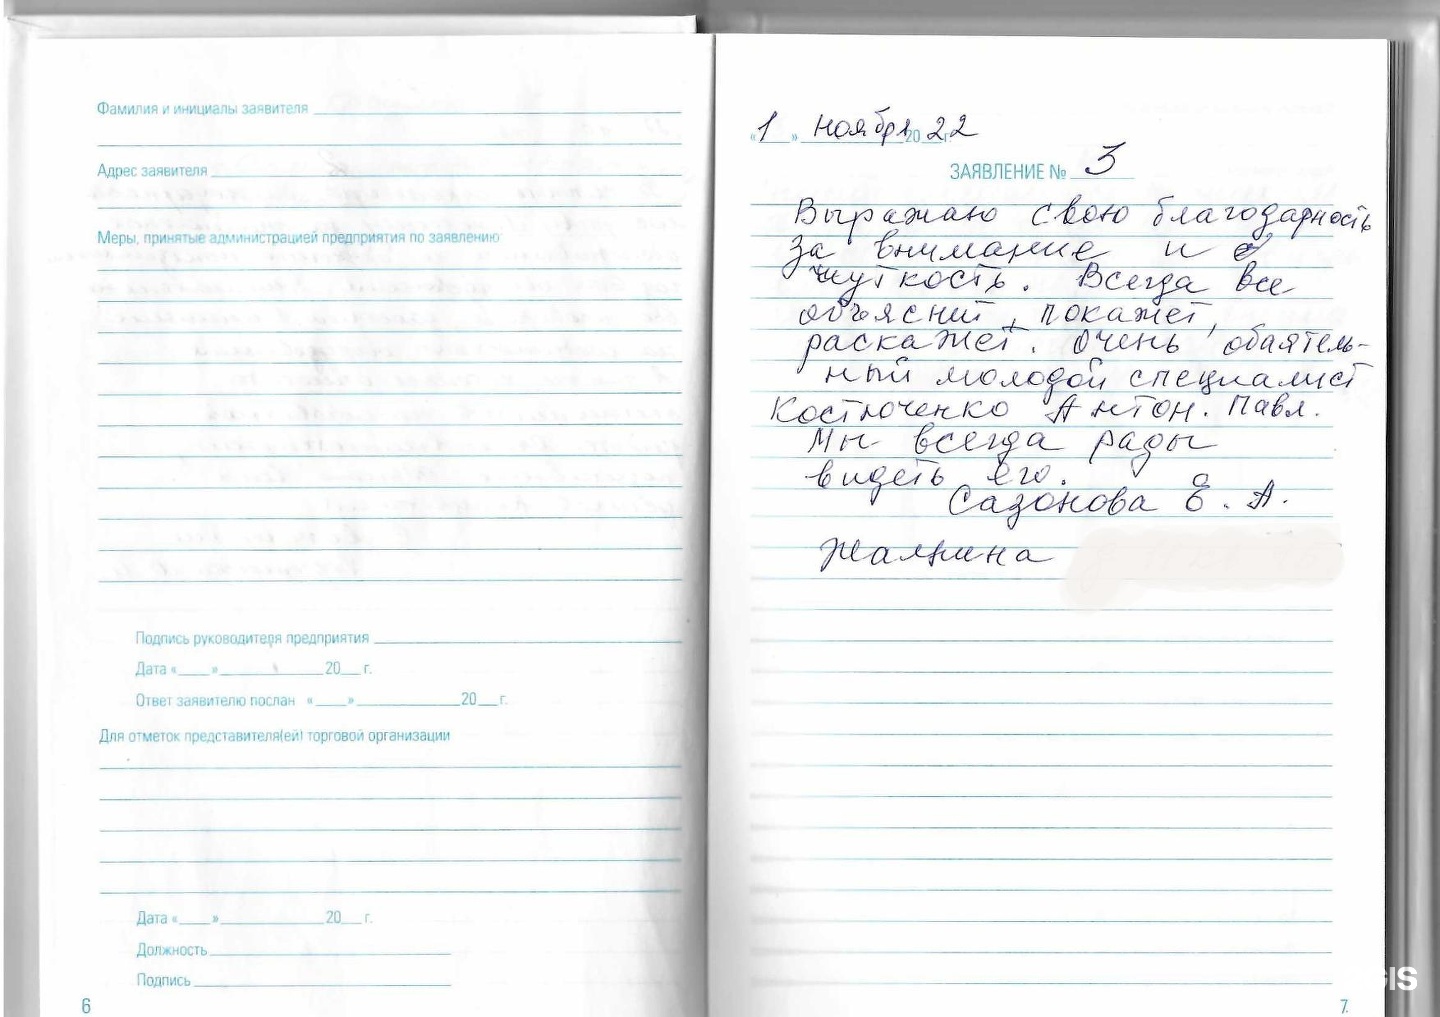 Фамилия и инициалы заявителя
Адрес заявителя
Меры, принятые администрацией предприятия по заявлению
Подпись руководителя предприятия
Дата «___» ______ 20__ г.
Ответ заявителю послан «___» ______ 20__ г.
Для отметок представителя(ей) торговой организации
Дата «___» ______ 20__ г.
Должность
Подпись
6
«1» ноября 2022 г.
ЗАЯВЛЕНИЕ № 3
Выражаю свою благодарность
за внимание и
чуткость. Всегда все
объяснит, покажет,
раскажет. Очень обаятель-
ный молодой специалист
Костюченко Антон. Павл.
Мы всегда рады
видеть его.
Сазонова Е. А.
7
GIS